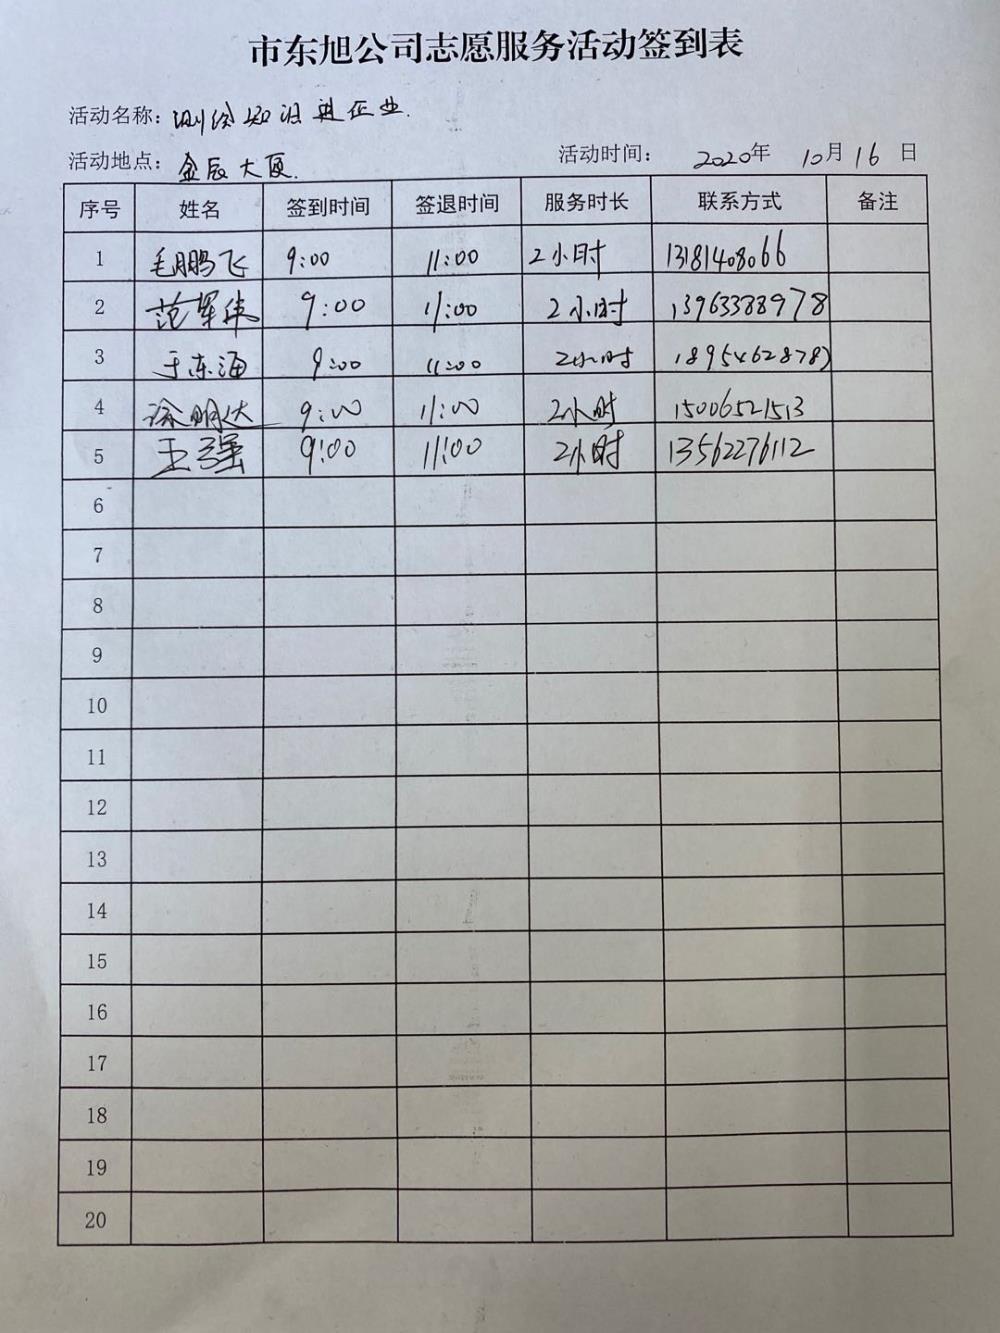 市东旭公司志愿服务活动签到表
活动名称：测绘知识进企业.
活动地点：金辰大厦. 活动时间： 2020年 10月16日
序号 姓名 签到时间 签退时间 服务时长 联系方式 备注
1 毛鹏飞 9:00 11:00 2小时 13181408066
2 范军伟 9:00 11:00 2小时 13963388978
3 于东海 9:00 11:00 2小时
4 徐明达 9:00 11:00 2小时 15006521513
5 王强 9:00 11:00 2小时 13562276112
6
7
8
9
10
11
12
13
14
15
16
17
18
19
20